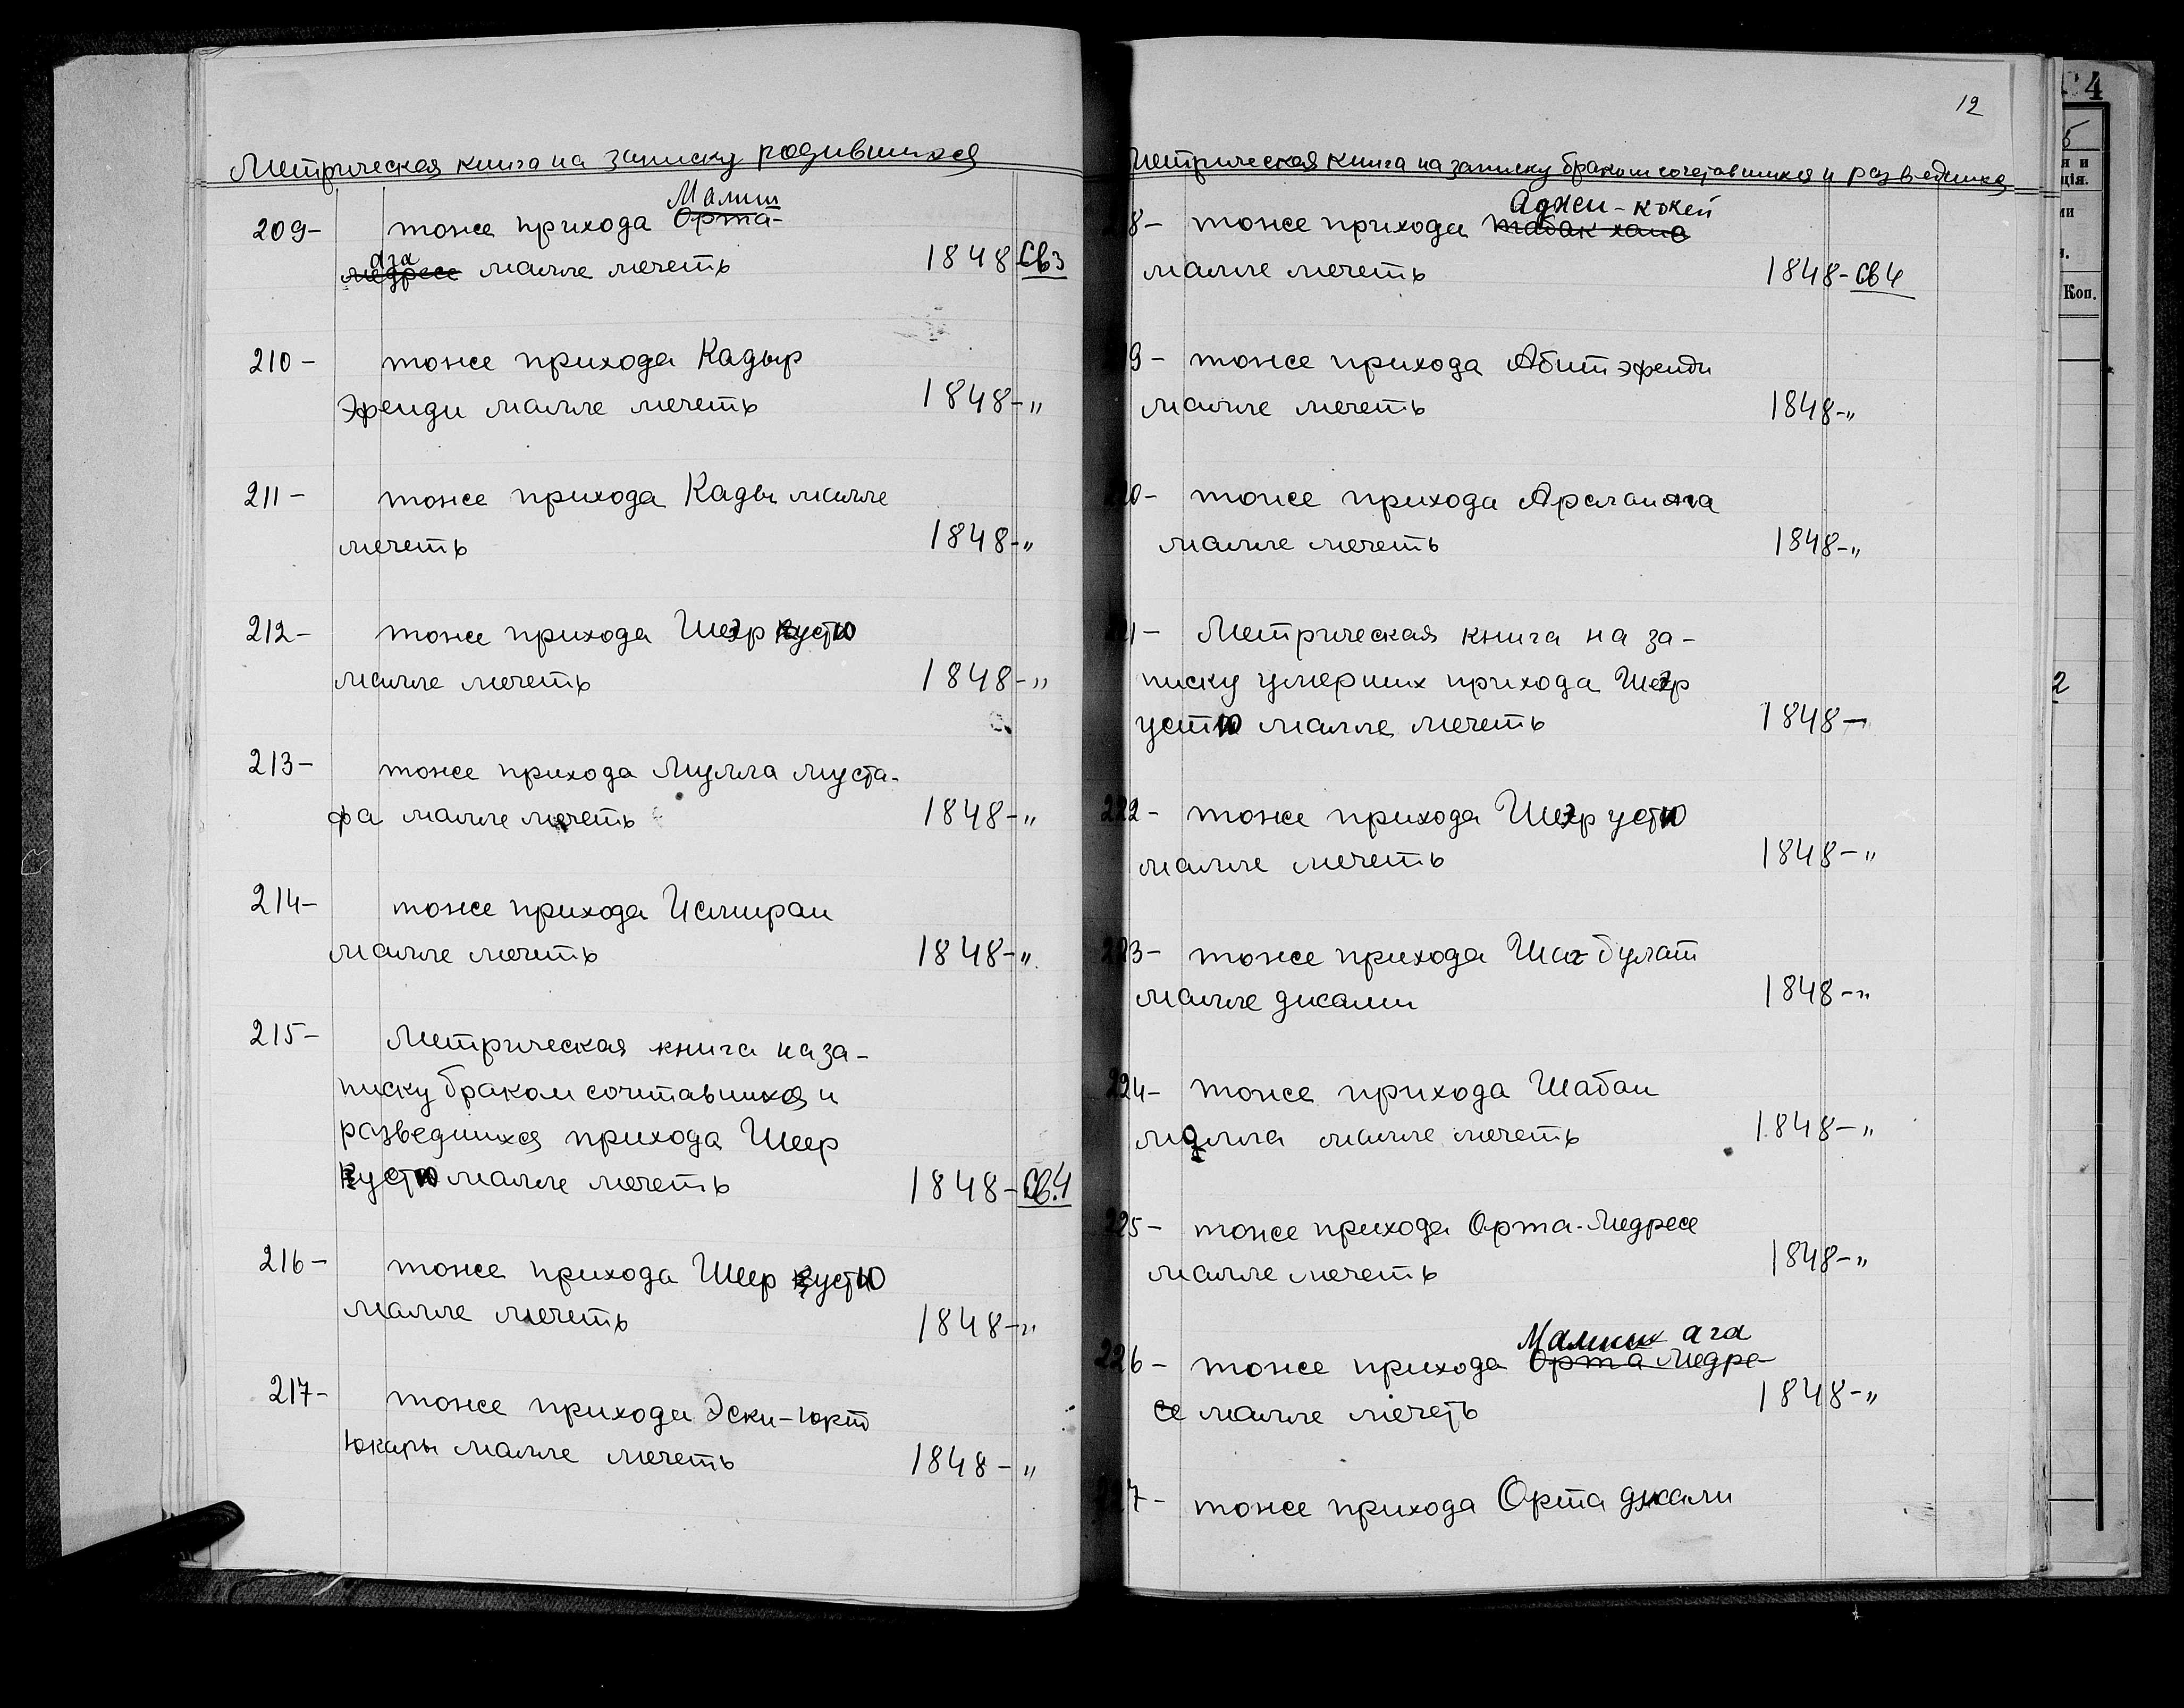 Метрическая книга на записку родившихся
Малиш
209- тоже прихода Орта-
ага
медресе малле мечеть 1848 Св3
210- тоже прихода Кадыр
Эфенди малле мечеть 1848-"
211- тоже прихода Кады малле
мечеть 1848-"
212- тоже прихода Шеэр кустю
малле мечеть 1848-"
213- тоже прихода Мулла муста-
фа малле мечеть 1848-"
214- тоже прихода Исмиран
малле мечеть 1848-"
215- Метрическая книга на за-
писку браком сочитавшихся и
разведшихся прихода Шеер
кустю малле мечеть 1848-Св.4
216- тоже прихода Шеер кустю
малле мечеть 1848-"
217- тоже прихода Эски-юрт
Юкары малле мечеть 1848-"
12
Метрическая книга на записку браком сочетавшихся и разведшихся
Аджи-кокей
8- тоже прихода табак хана
малле мечеть 1848-Св4
9- тоже прихода Абит эфенди
малле мечеть 1848-"
20- тоже прихода Арслан ага
малле мечеть 1848-"
21- Метрическая книга на за-
писку умерших прихода Шеэр
устю малле мечеть 1848-
222- тоже прихода Шеэр устю
малле мечеть 1848-"
223- тоже прихода Шах булат
малле джами 1848-"
224- тоже прихода Шабан
мулла малле мечеть 1848-"
225- тоже прихода Орта-Медресе
малле мечеть 1848-"
ага
226- тоже прихода Орта Медре-
се малле мечеть 1848-"
227- тоже прихода Орта джами
4
5
Коп.
2